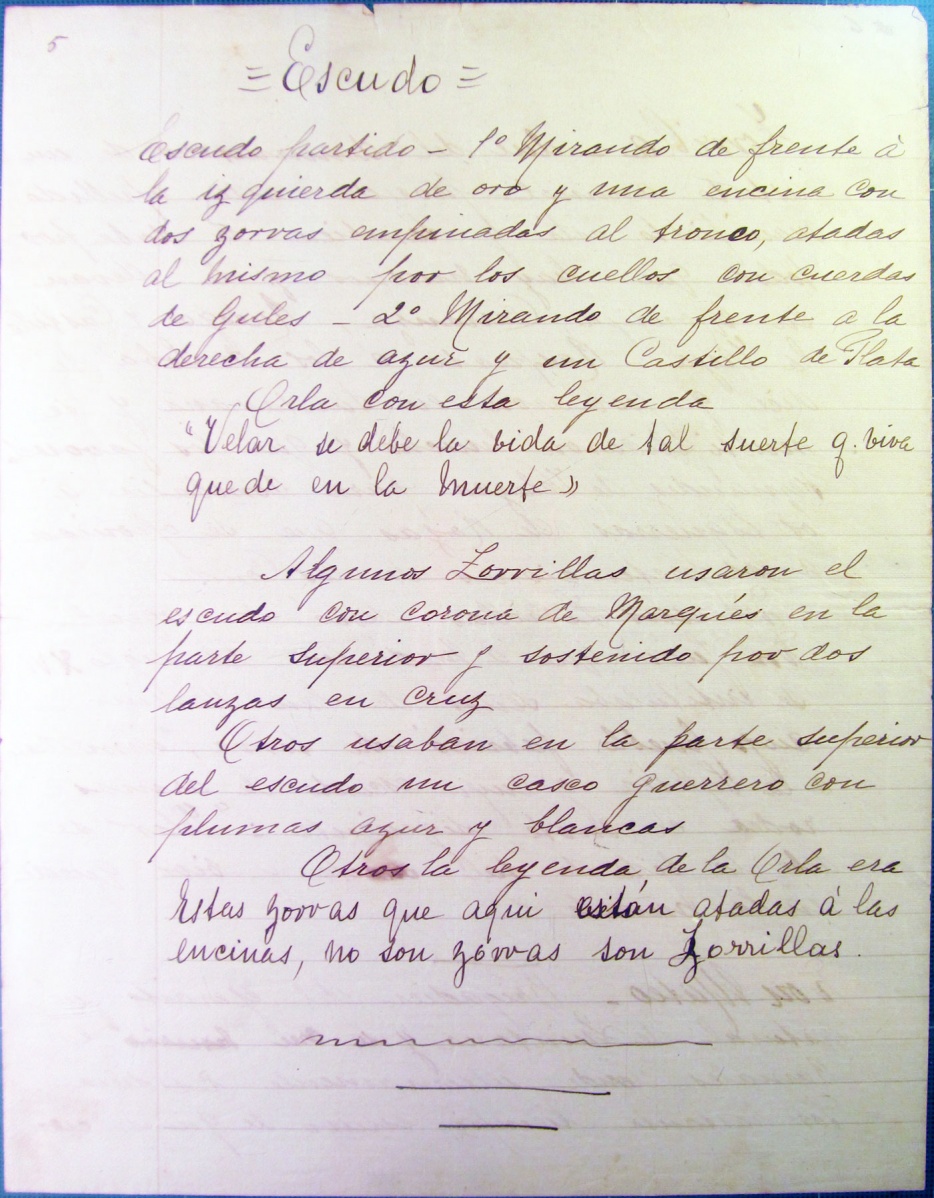 5
= Escudo =
Escudo partido - 1º Mirando de frente à
la izquierda de oro y una encina con
dos zorras empinadas al tronco, atadas
al mismo por los cuellos con cuerdas
de Gules - 2º Mirando de frente a la
derecha de azur y un Castillo de Plata
Orla con esta leyenda
"Velar se debe la vida de tal suerte q. viva
quede en la muerte»
Algunos Zorrillas usaron el
escudo con corona de Marqués en la
parte superior y sostenido por dos
lanzas en cruz
Otros usaban en la parte superior
del escudo un casco guerrero con
plumas azur y blancas
Otros la leyenda de la Orla era
Estas zorras que aqui están atadas à las
encinas, no son zorras son Zorrillas.